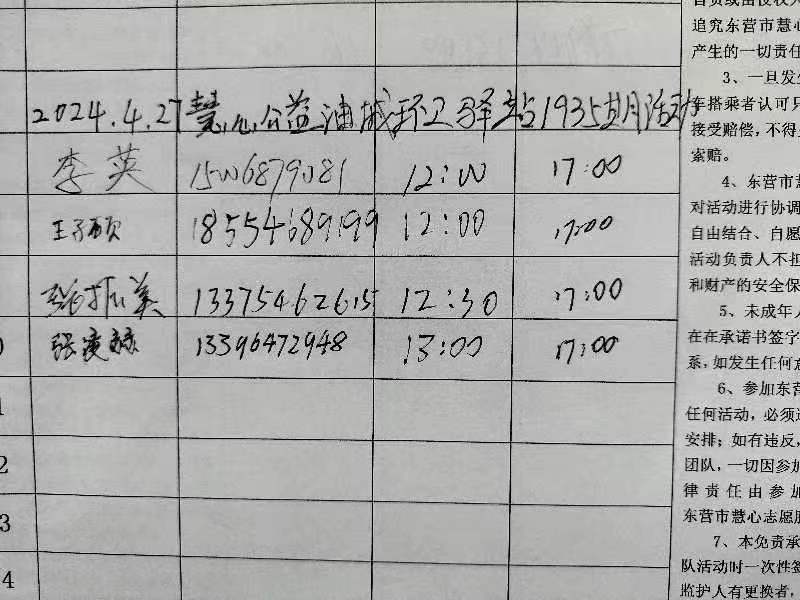 2024.4.27慧心公益油城环卫驿站1935期活动
李英 15006879081 12:00 17:00
王子硕 18554689199 12:00 17:00
张振美 13375462615 12:30 17:00
张 13396472948 13:00 17:00
1
2
3
4
追究东营市慧心
产生的一切责任
3、一旦发生
车搭乘者认可只
接受赔偿,不得
索赔。
4、东营市慧
对活动进行协调
自由结合、自愿
活动负责人不担
和财产的安全保
5、未成年人
在在承诺书签字
系,如发生任何意
6、参加东营
任何活动,必须遵
安排;如有违反,
团队,一切因参加
律责任由参加
东营市慧心志愿服
7、本免责承
队活动时一次性签
监护人有更换者,